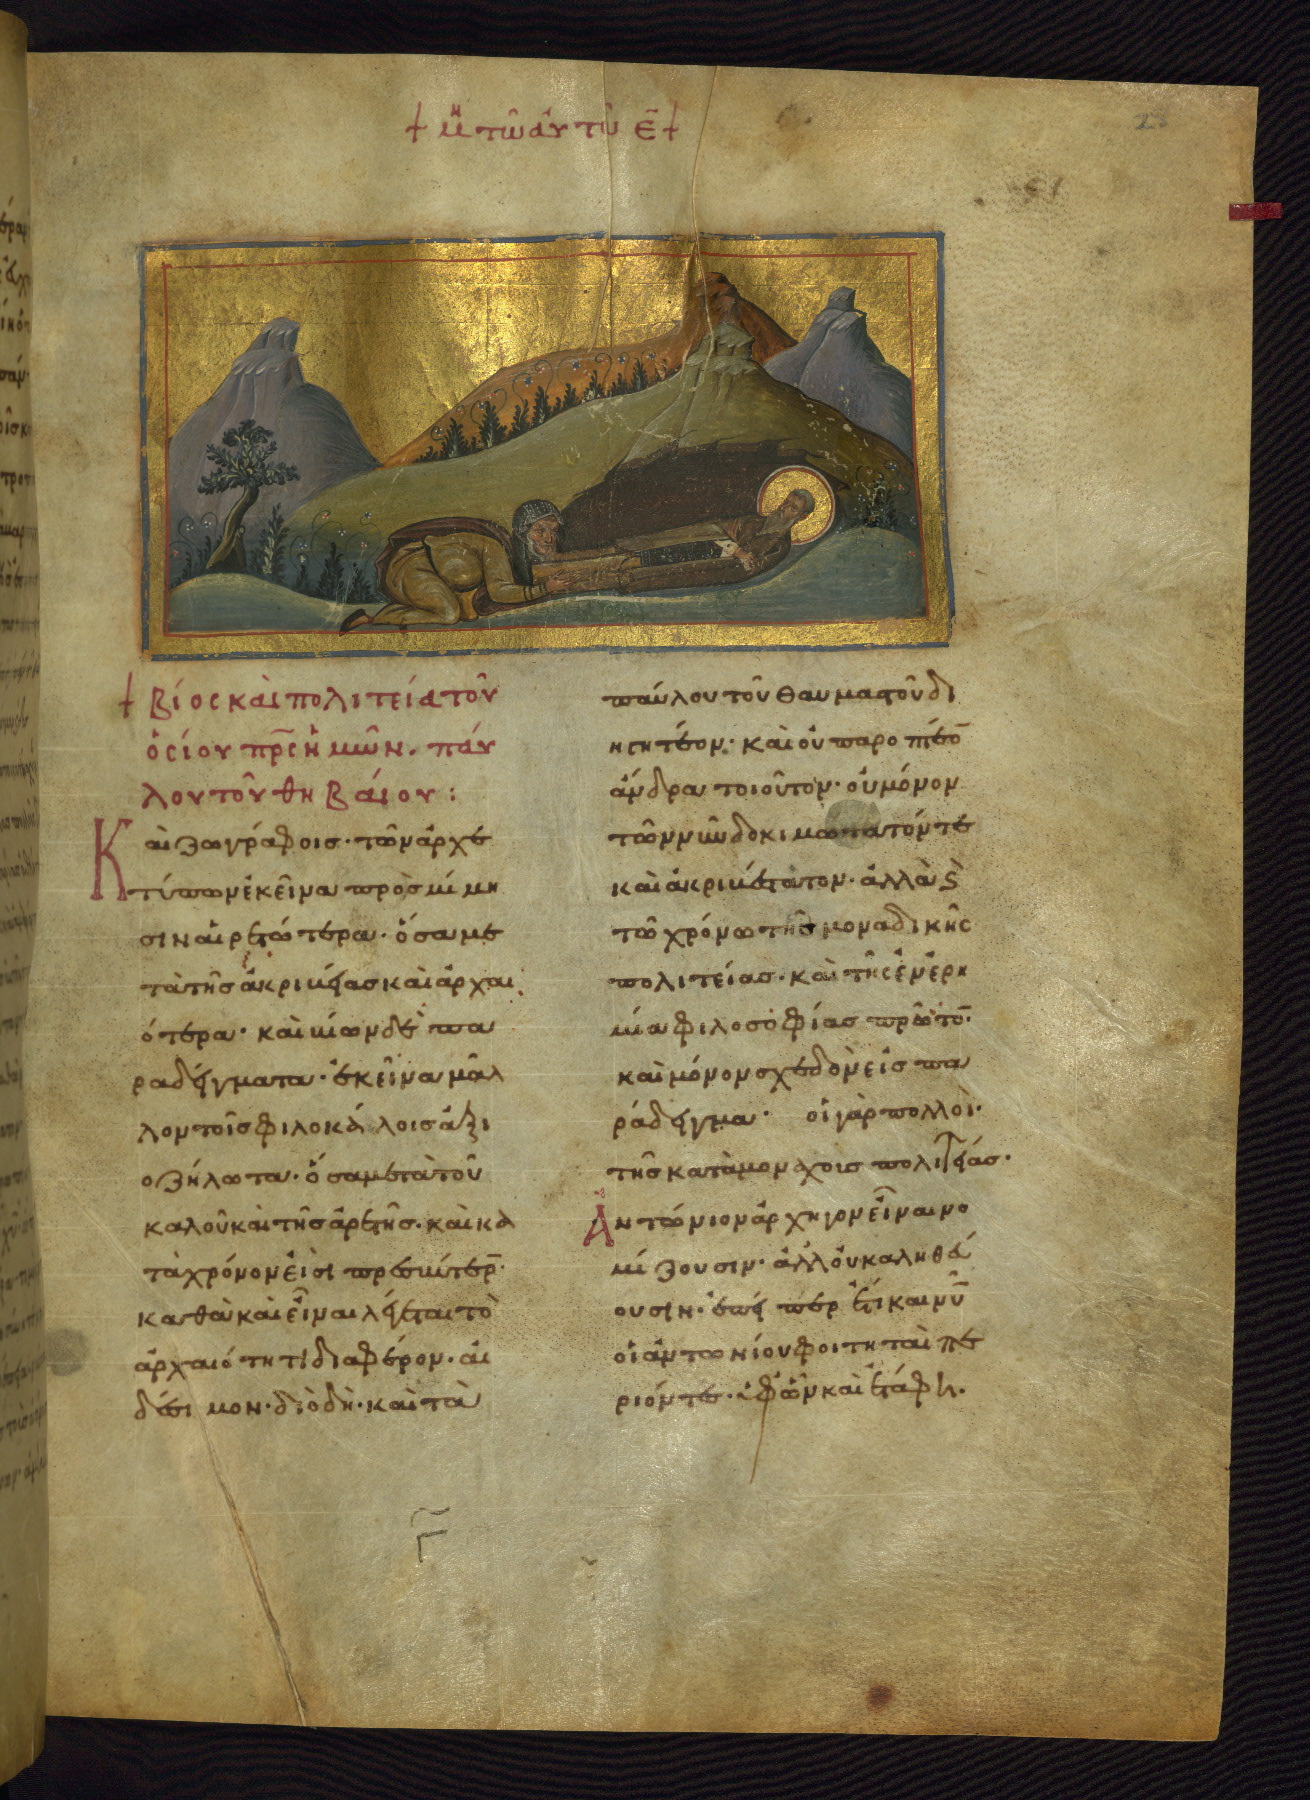 † μη τῶ αὐτῶ ιε †
† βίος καὶ πολιτεία τοῦ
ὁσίου πρς ἡμῶν. παύ
λου τοῦ θηβαίου:
Καὶ ζωγράφοις· τῶν ἀρχε
τύπων ἐκεῖνα πρὸς μίμη
σιν αἱρετώτερα· ὅσα με
τὰ τῆς ἀκριβείας καὶ ἀρχαι
ότερα· καὶ βίων δὲ πα
ραδείγματα· ἐκεῖνα μᾶλ
λον τοῖς φιλοκάλοις ἀξι
οζήλωτα· ὅσα μετὰ τοῦ
καλοῦ καὶ τῆς ἀρετῆς· καὶ κα
τὰ χρόνον εἰσὶ πρεσβύτερ·
καθὰ καὶ εἶναι λέγεται τὸ
ἀρχαιότητι διαφέρον· αἰ
δέσιμον· διὸ δὴ· καὶ τὰ
παύλου τοῦ θαυμαστοῦ δι
ηγητέον· καὶ οὐ παροπτέο
ἄνδρα τοιοῦτον· οὐ μόνον
τῶν νῦν δοκιμώτατόν τε
καὶ ἀκριβέστατον· ἀλλὰ ϗ
τῶ χρόνω τῆς μοναδικῆς
πολιτείας· καὶ τῆς ἐν ἐρη
μία φιλοσοφίας πρῶτο·
καὶ μόνον σχεδὸν εἰς πα
ράδειγμα· οἱ γὰρ πολλοὶ·
τῆς κατὰ μοναχοὺς πολιτείας·
Ἀντώνιον ἀρχηγὸν εἶναι νο
μίζουσιν· ἀλλ' οὐκ ἀληθεύ
ουσιν· ἐπείπερ ἔτι καὶ νῦ
οἱ ἀντωνίου φοιτηταὶ πε
ριόντες· ὑφ' ὧν καὶ ἐτάφη·